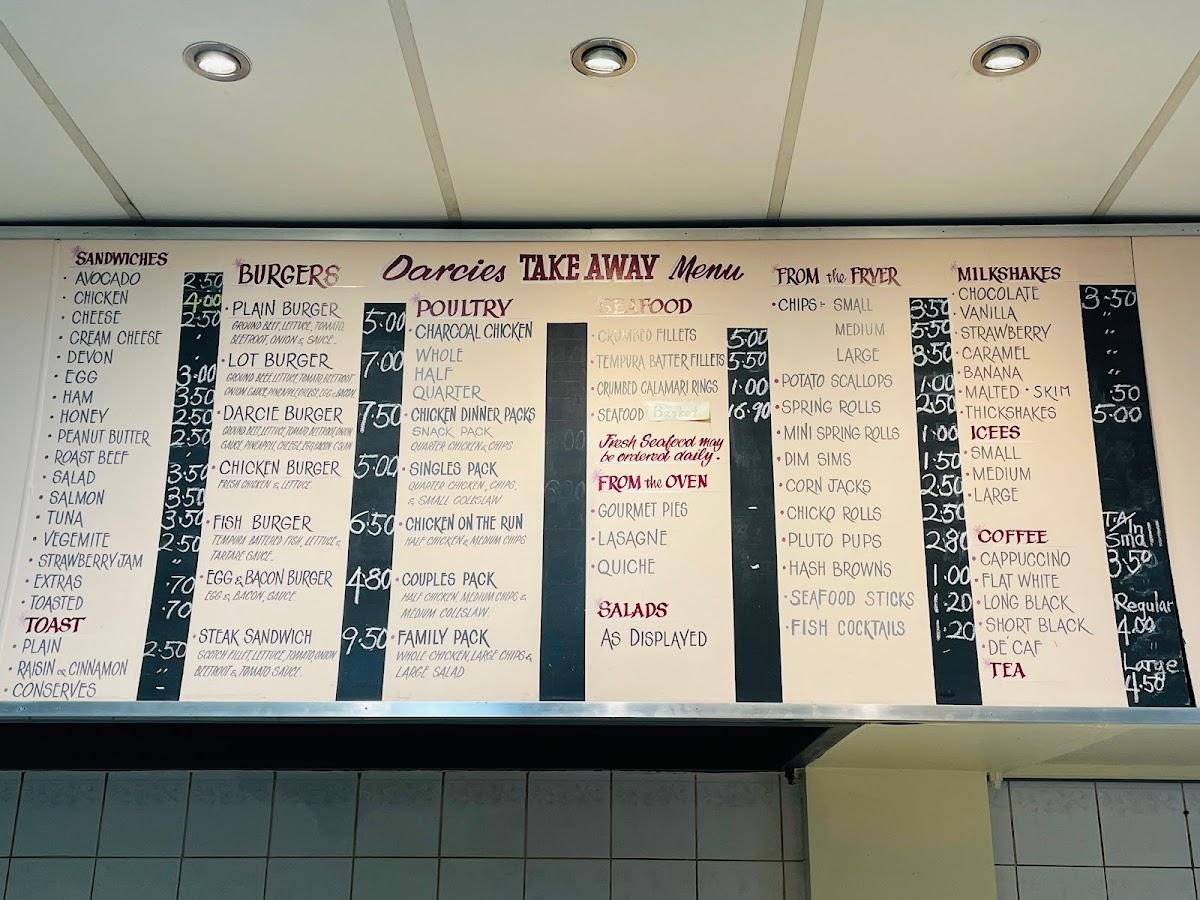 Darcies TAKE AWAY Menu
SANDWICHES
AVOCADO 2.50
CHICKEN 4.00
CHEESE 2.50
CREAM CHEESE "
DEVON
EGG 3.00
HAM 3.50
HONEY 2.50
PEANUT BUTTER 2.50
ROAST BEEF
SALAD 3.50
SALMON 3.50
TUNA 3.50
VEGEMITE 2.50
STRAWBERRY JAM
EXTRAS .70
TOASTED .70
TOAST
PLAIN 2.50
RAISIN OR CINNAMON "
CONSERVES
BURGERS
PLAIN BURGER 5.00
GROUND BEEF, LETTUCE, TOMATO,
BEETROOT, ONION & SAUCE.
LOT BURGER 7.00
GROUND BEEF, LETTUCE, TOMATO, BEETROOT,
ONION, SAUCE, PINEAPPLE, CHEESE, EGG & BACON.
DARCIE BURGER 7.50
GROUND BEEF, LETTUCE, TOMATO, BEETROOT, ONION,
SAUCE, PINEAPPLE, CHEESE, EGG, BACON
CHICKEN BURGER 5.00
FRESH CHICKEN & LETTUCE.
FISH BURGER 6.50
TEMPURA BATTERED FISH, LETTUCE &
TARTARE SAUCE.
EGG & BACON BURGER 4.80
EGG & BACON, SAUCE.
STEAK SANDWICH 9.50
SCOTCH FILLET, LETTUCE, TOMATO, ONION
BEETROOT & TOMATO SAUCE.
POULTRY
CHARCOAL CHICKEN
WHOLE
HALF
QUARTER
CHICKEN DINNER PACKS
SNACK PACK
QUARTER CHICKEN & CHIPS
SINGLES PACK
QUARTER CHICKEN, CHIPS,
& SMALL COLESLAW
CHICKEN ON THE RUN
HALF CHICKEN & MEDIUM CHIPS
COUPLES PACK
HALF CHICKEN, MEDIUM CHIPS &
MEDIUM COLESLAW.
FAMILY PACK
WHOLE CHICKEN, LARGE CHIPS &
LARGE SALAD
SEAFOOD
CRUMBED FILLETS 5.00
TEMPURA BATTER FILLETS 5.50
CRUMBED CALAMARI RINGS 1.00
SEAFOOD Basket 16.90
Fresh Seafood may
be ordered daily.
FROM the OVEN
GOURMET PIES -
LASAGNE
QUICHE -
SALADS
AS DISPLAYED
FROM the FRYER
CHIPS - SMALL 3.50
MEDIUM 5.50
LARGE 8.50
POTATO SCALLOPS 1.00
SPRING ROLLS 2.50
MINI SPRING ROLLS 1.00
DIM SIMS 1.50
CORN JACKS 2.50
CHICKO ROLLS 2.50
PLUTO PUPS 2.80
HASH BROWNS 1.00
SEAFOOD STICKS 1.20
FISH COCKTAILS 1.20
MILKSHAKES
CHOCOLATE 3.50
VANILLA "
STRAWBERRY "
CARAMEL "
BANANA "
MALTED · SKIM .50
THICKSHAKES 5.00
ICEES
SMALL
MEDIUM
LARGE
COFFEE
CAPPUCCINO
FLAT WHITE
LONG BLACK
SHORT BLACK
DE'CAF
TEA
T.A/In
Small
3.50
Regular
4.00
Large
4.50